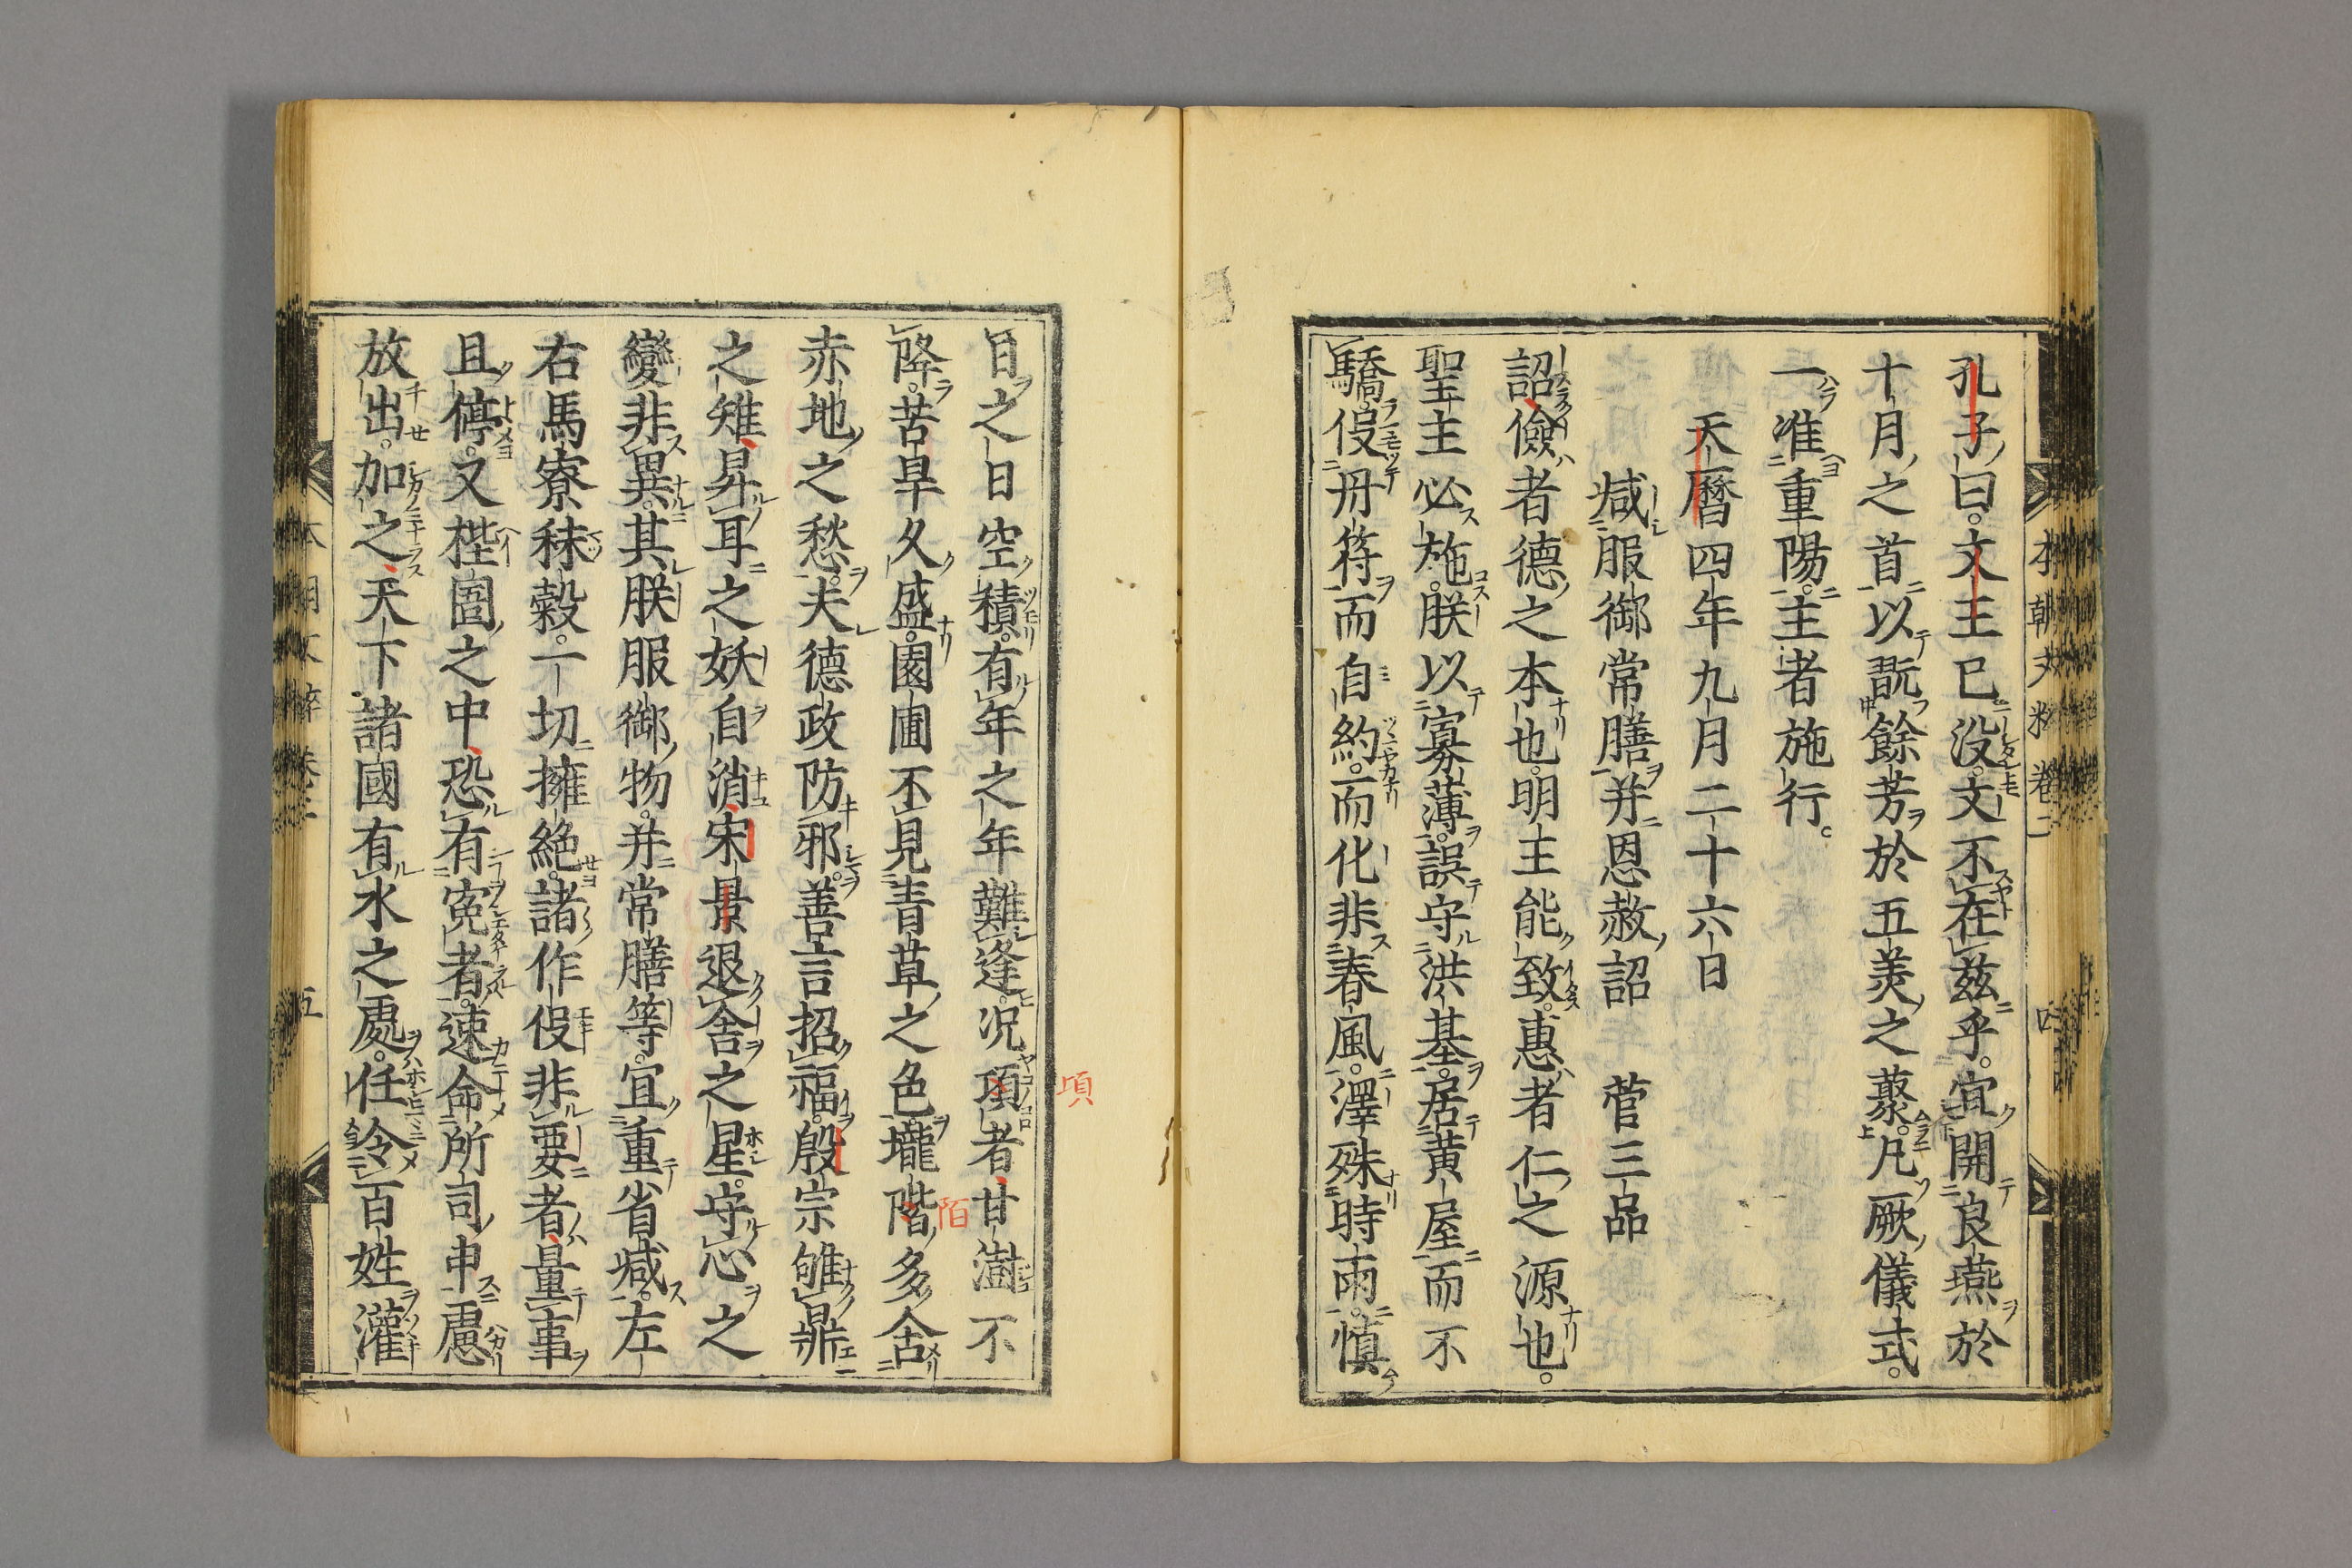 本朝文粹卷二 四
孔子曰。文王已沒。文不在茲乎。宜開良燕於
十月之首以翫餘芳於五美之藂。凡厥儀式。
一准重陽。主者施行。
天曆四年九月二十六日
減服御常膳并恩赦詔 菅三品
詔儉者德之本也。明主能致。惠者仁之源也。
聖主必施。朕以寡薄。誤守洪基。居黃屋而不
驕。伇丹符而自約。而化非春風。澤殊時雨。慎
日之日空積。有年之年難逢。況項者甘澍不
項
降。苦旱久盛。園圃不見青草之色。壠階多舍
陌
赤地之愁。夫德政防邪。善言招福。殷宗雊鼎
之雉昇耳之妖自消宋景退舍之星。守心之
變非異。其朕服御物。并常膳等。宜重省減。左
右馬寮秣穀。一切擁絕。諸作伇非要者量事
且停。又狴圄之中恐有寃者。速命所司申慮
放出。加之天下諸國有水之處。任令百姓灌
本朝文粹卷二 五